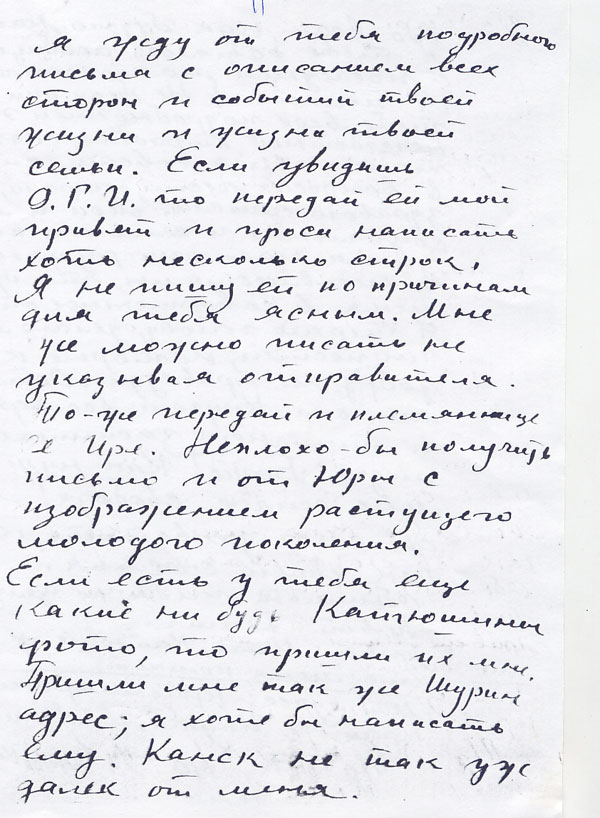 Я жду от тебя подробного
письма с описанием всех
сторон и событий твоей
жизни и жизни твоей
семьи. Если увидишь
О. Г. И. то передай ей мой
привет и проси написать
хоть несколько строк.
Я не пишу ей по причинам
для тебя ясным. Мне
же можно писать не
указывая отправителя.
То-же передай и племяннице
Ире. Неплохо-бы получить
письмо и от Юры с
изображением растущего
молодого поколения.
Если есть у тебя еще
какие ни будь Катюшины
фото, то пришли их мне.
Пришли мне так же Шурин
адрес; я хоте бы написать
ему. Канск не так уж
далек от меня.